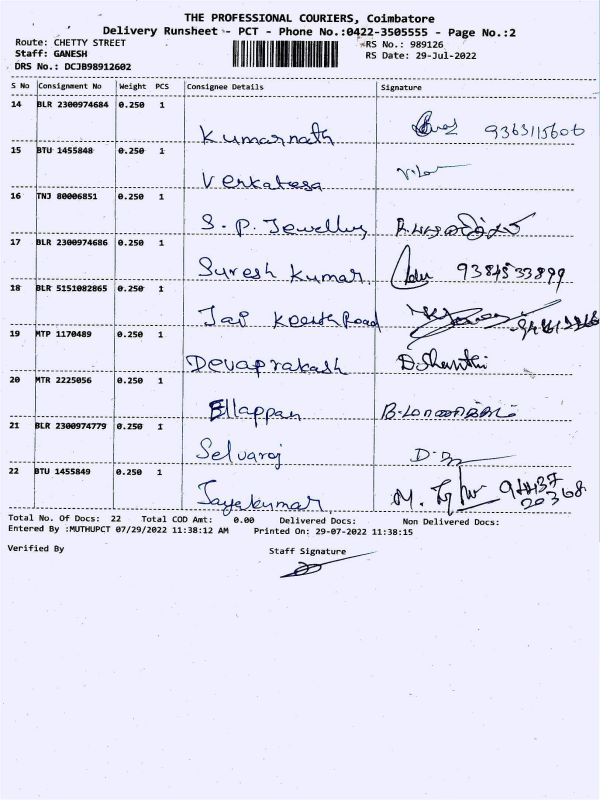 THE PROFESSIONAL COURIERS, Coimbatore
Delivery Runsheet - PCT - Phone No.:0422-3505555 - Page No.:2
Route: CHETTY STREET RS No.: 989126
Staff: GANESH RS Date: 29-Jul-2022
DRS No.: DCJB98912602
S No Consignment No Weight PCS Consignee Details Signature
14 BLR 2300974684 0.250 1
Kumarnath 9363115606
15 BTU 1455848 0.250 1
Venkatesa
16 TNJ 80006851 0.250 1
S. P. Jewellery
17 BLR 2300974686 0.250 1
Suresh Kumar 9384533899
18 BLR 5151082865 0.250 1
Jai Road
19 MTP 1170489 0.250 1
Devaprakash D.Shanthi
20 MTR 2225056 0.250 1
Ellappan
21 BLR 2300974779 0.250 1
Selvaraj
22 BTU 1455849 0.250 1
Jayakumar 94437
20368
Total No. Of Docs: 22 Total COD Amt: 0.00 Delivered Docs: Non Delivered Docs:
Entered By :MUTHUPCT 07/29/2022 11:38:12 AM Printed On: 29-07-2022 11:38:15
Verified By Staff Signature